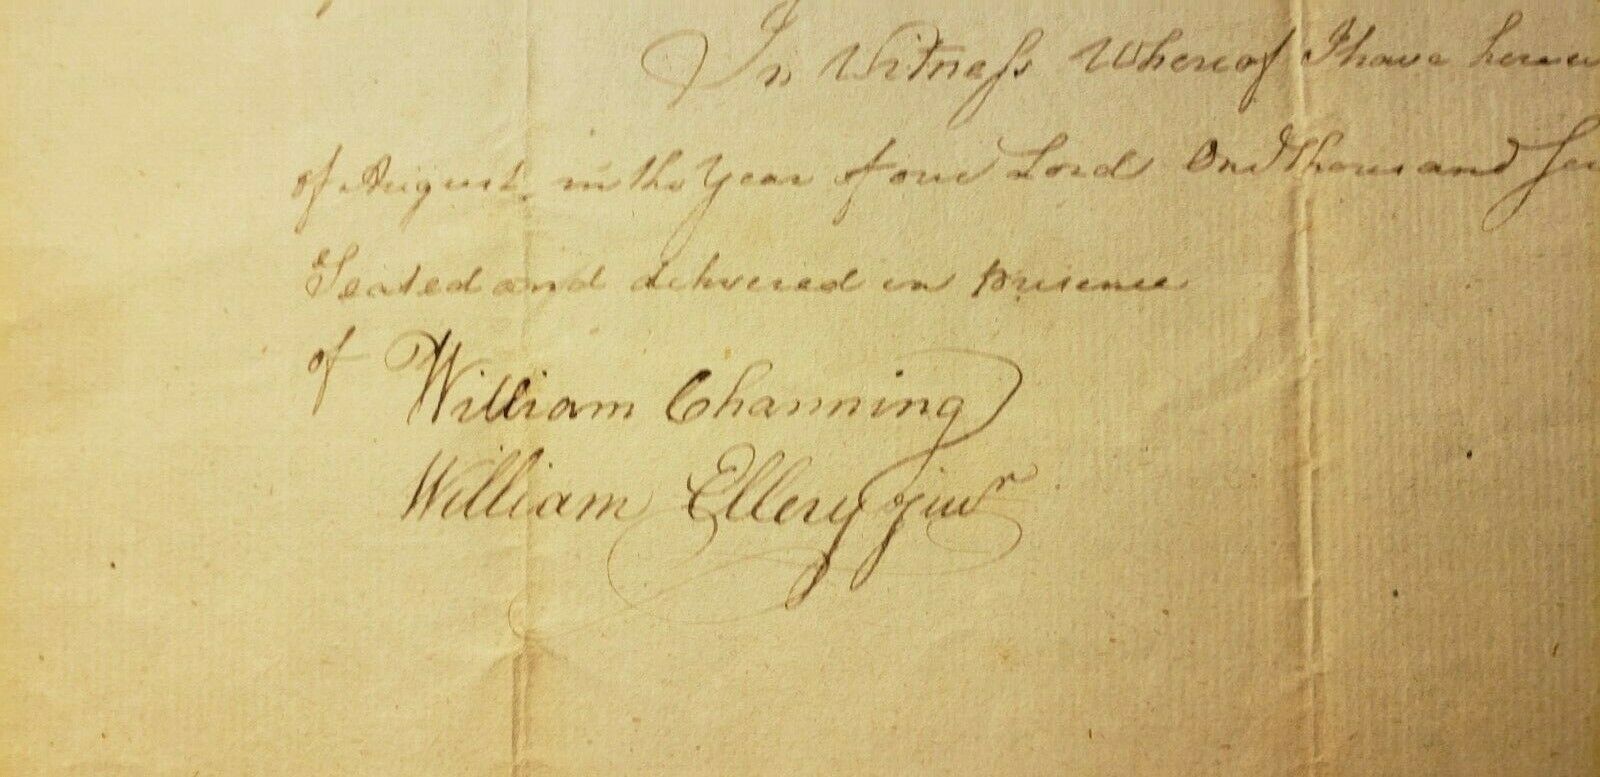 In Witness Whereof I have
of August in the Year of our Lord One Thousand
Sealed and delivered in presence
of William Channing
William Ellery junr